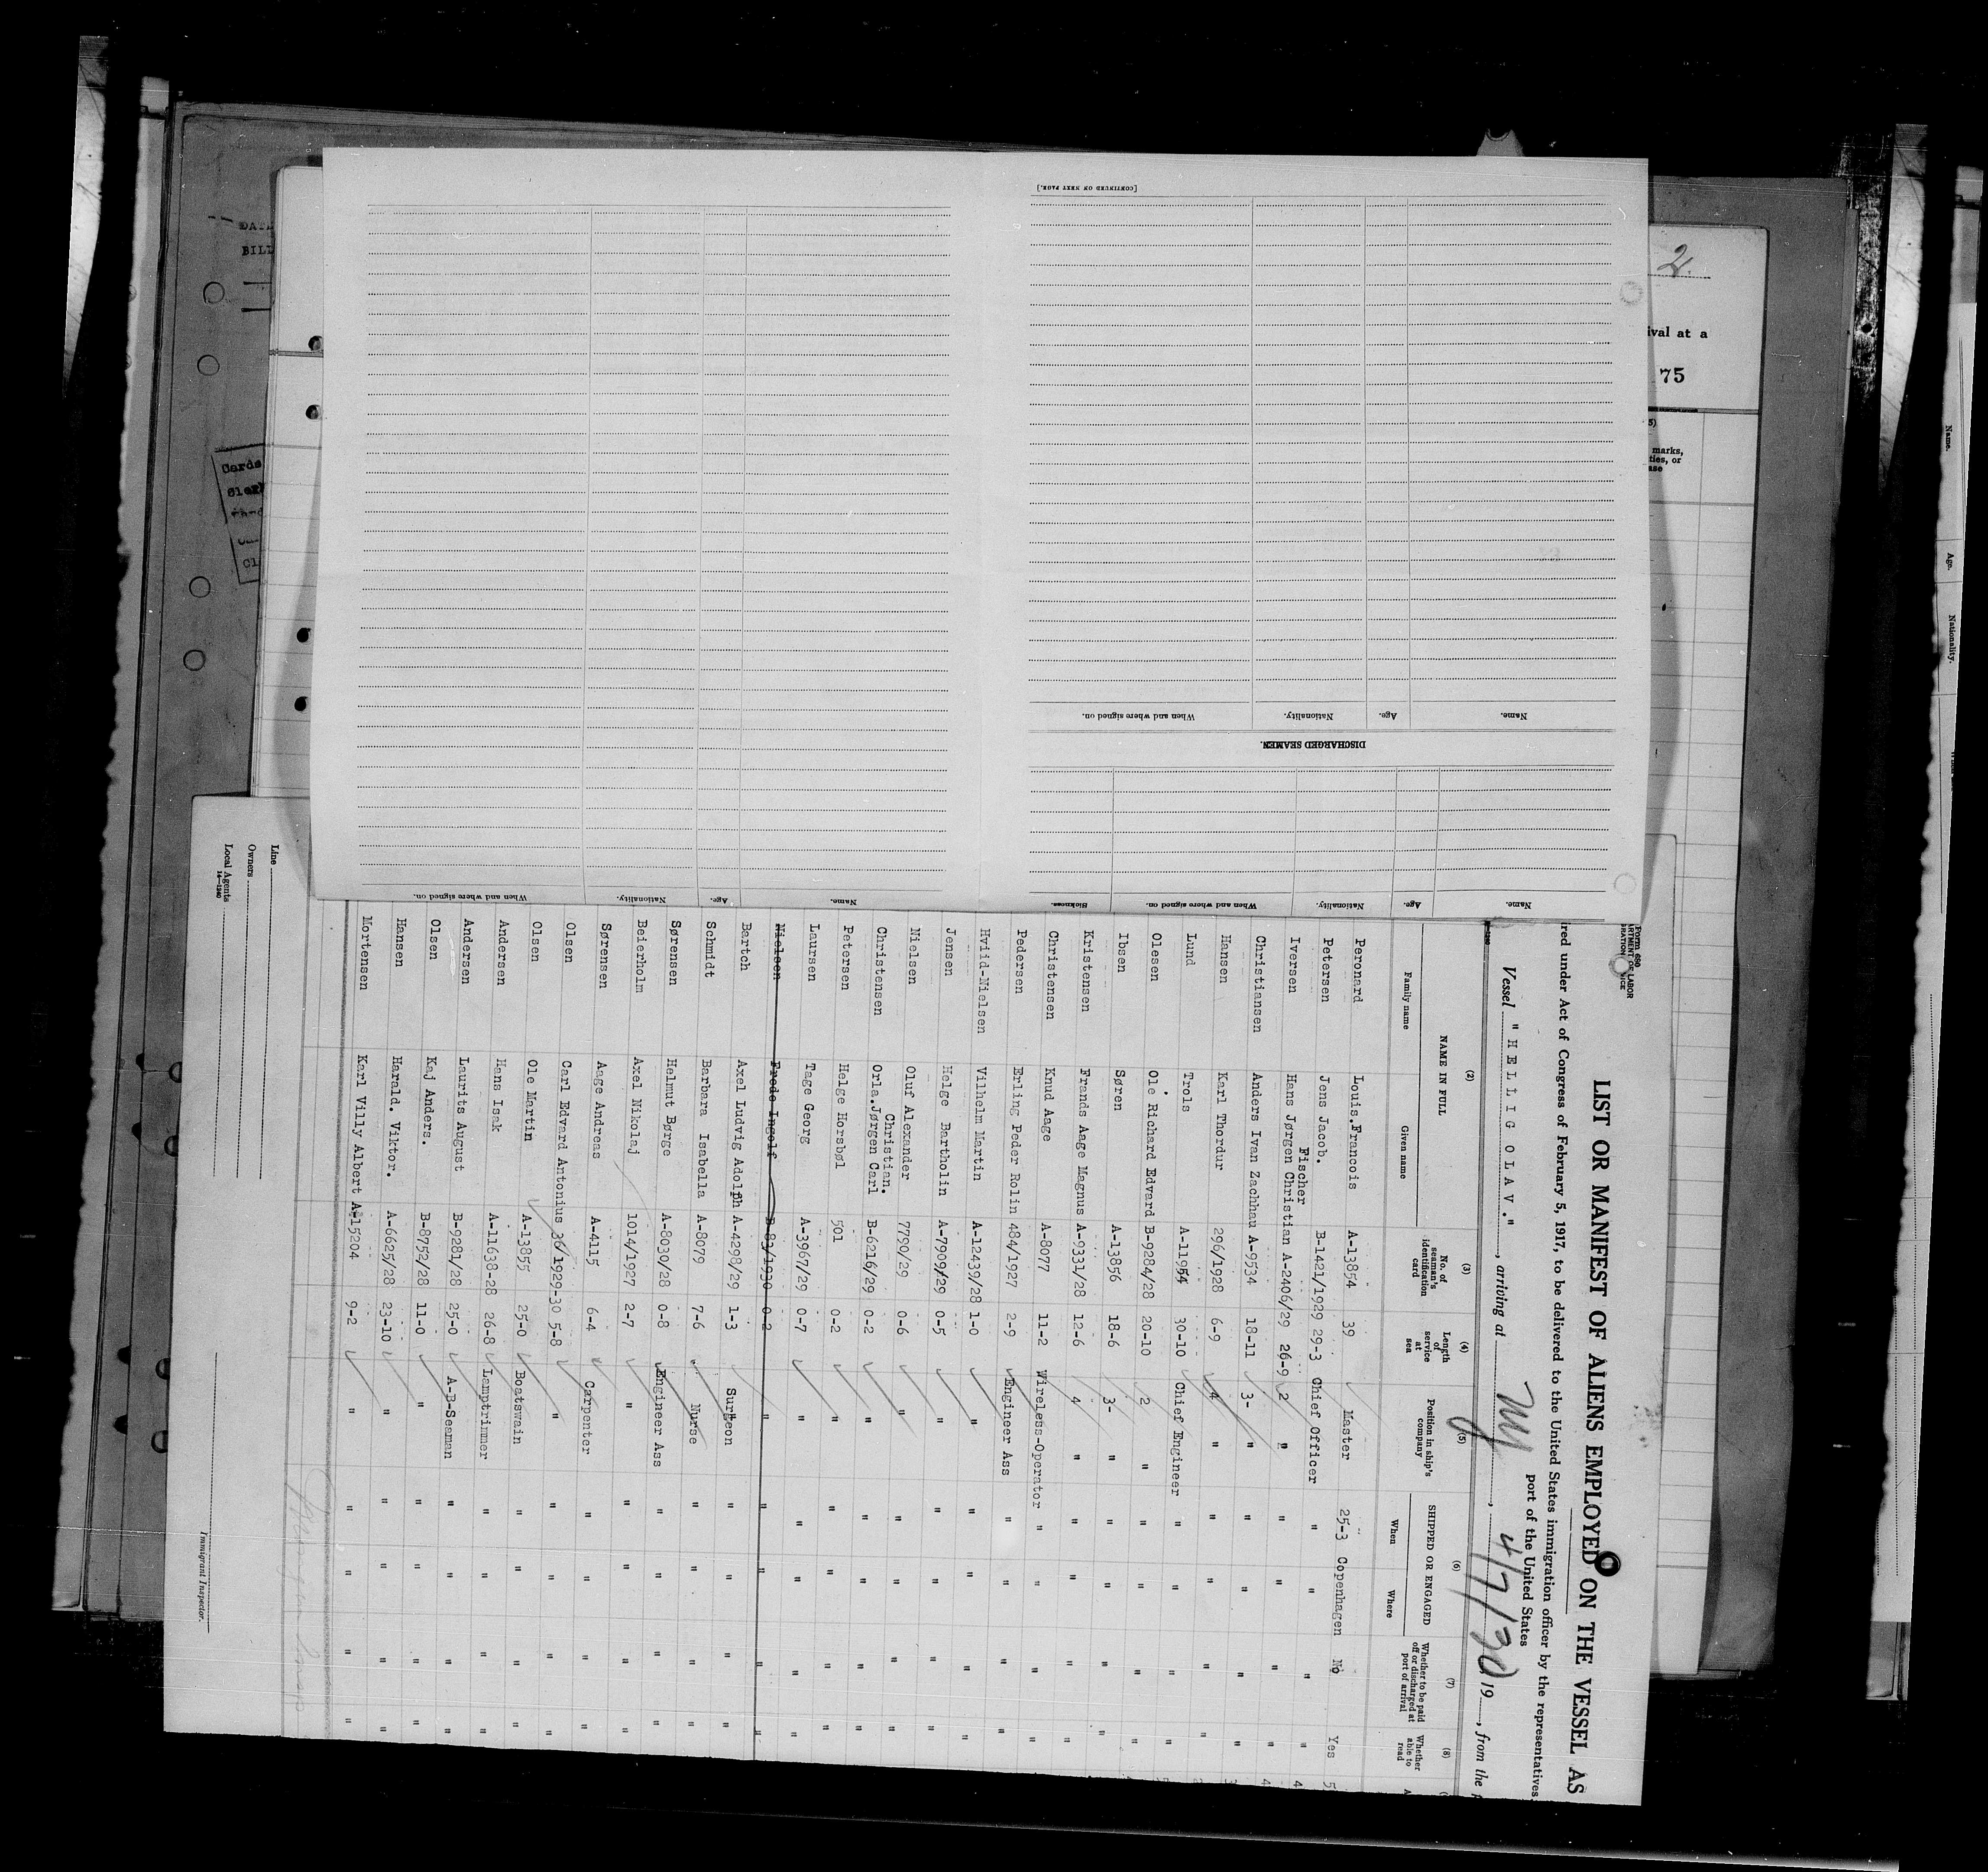 Form 680
LIST OR MANIFEST OF ALIENS EMPLOYED ON THE VESSEL AS
red under Act of Congress of February 5, 1917, to be delivered to the United States immigration officer by the representatives
port of the United States
Vessel " HELLIG OLAV .", arriving at NY, 4/7/30 19, from the
(2) (3) (4) (5) (6) (7) (8)
NAME IN FULL
Family name Given name
No. of seaman's identification card
Length of service at sea
Position in ship's company
SHIPPED OR ENGAGED
When Where
Whether to be paid off or discharged at port of arrival
Whether able to read
Peronard Louis.Francois A-13854 39 Master 25-3 Copenhagen No Yes 5
Petersen Jens Jacob. B-1421/1929 29-3 Chief Officer " " " " 4
Fischer
Iversen Hans Jørgen Christian A-2406/29 26-9 2 " " " " " 4
Christiansen Anders Ivan Zachhau A-9534 18-11 3- " " " " "
Hansen Karl Thordur 296/1928 6-9 4 " " " " "
Lund Trols A-11954 30-10 Chief Engineer " " " "
Olesen Ole Richard Edvard B-9284/28 20-10 2 " " " " "
Ibsen Søren A-13856 18-6 3- " " " " "
Kristensen Frands Aage Magnus A-9331/28 12-6 4 " " " " "
Christensen Knud Aage A-8077 11-2 Wireless-Operator " " " "
Pedersen Erling Peder Rolin 484/1927 2-9 Engineer Ass " " " "
Hviid-Nielsen Vilhelm Martin A-12439/28 1-0 " " " " "
Jensen Helge Bartholin A-7909/29 0-5 " " " " "
Nielsen Oluf Alexander 7790/29 0-6 " " " " "
Christian.
Christensen Orla.Jørgen Carl B-6216/29 0-2 " " " " "
Petersen Helge Horsbøl 501 0-2 " " " " "
Laursen Tage Georg A-3967/29 0-7 " " " " "
Nielsen Frede Ingolf B-83/1930 0-2 " " " " "
Bartch Axel Ludvig Adolph A-4298/29 1-3 Surgeon " " " "
Schmidt Barbara Isabella A-8079 7-6 Nurse " " " "
Sørensen Helmut Børge A-8030/28 0-8 Engineer Ass " " " "
Beierholm Axel Nikolaj 1014/1927 2-7 " " " " "
Sørensen Aage Andreas A-4115 6-4 Carpenter " " " "
Olsen Carl Edvard Antonius 36/1929-30 5-8 " " " " "
Olsen Ole Martin A-13855 25-0 Boatswain " " " "
Andersen Hans Isak A-11638-28 26-8 Lamptrimmer " " " "
Andersen Laurits August B-9281/28 25-0 A-B-Seeman " " " "
Olsen Kaj Anders. B-8752/28 11-0 " " " " "
Hansen Harald. Viktor. A-6625/28 23-10 " " " " "
Mortensen Karl Villy Albert A-15204 9-2 " " " " "
Line
Owners
Local Agents
14—1240
Immigrant Inspector.
[CONTINUED ON NEXT PAGE.]
Name. Age. Nationality. When and where signed on. Sickness.
DISCHARGED SEAMEN.
Name. Age. Nationality. When and where signed on.
Name. Age. Nationality. When and where signed on.
2.
ival at a
75
marks,
ties, or
ase
Name. Age. Nationality.
BILL
Cards